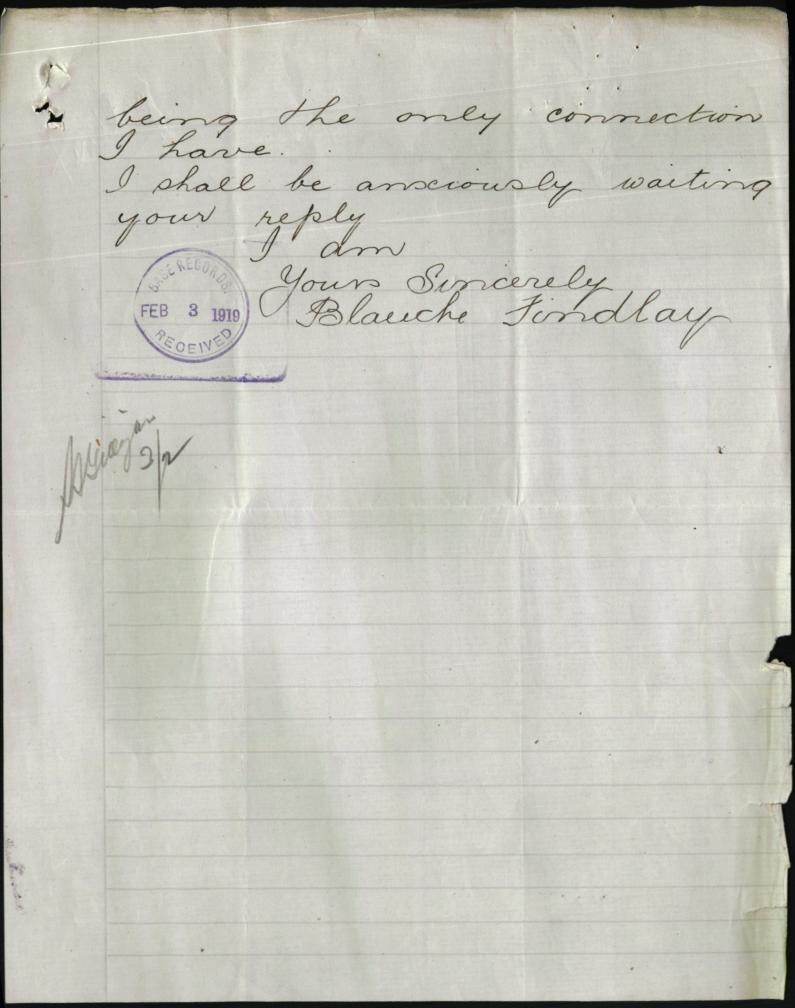 being the only connection
I have.
I shall be anxiously waiting
your reply
I am
Yours Sincerely
Blanche Findlay
BASE RECORDS.
FEB 3 1919
RECEIVED
3/2